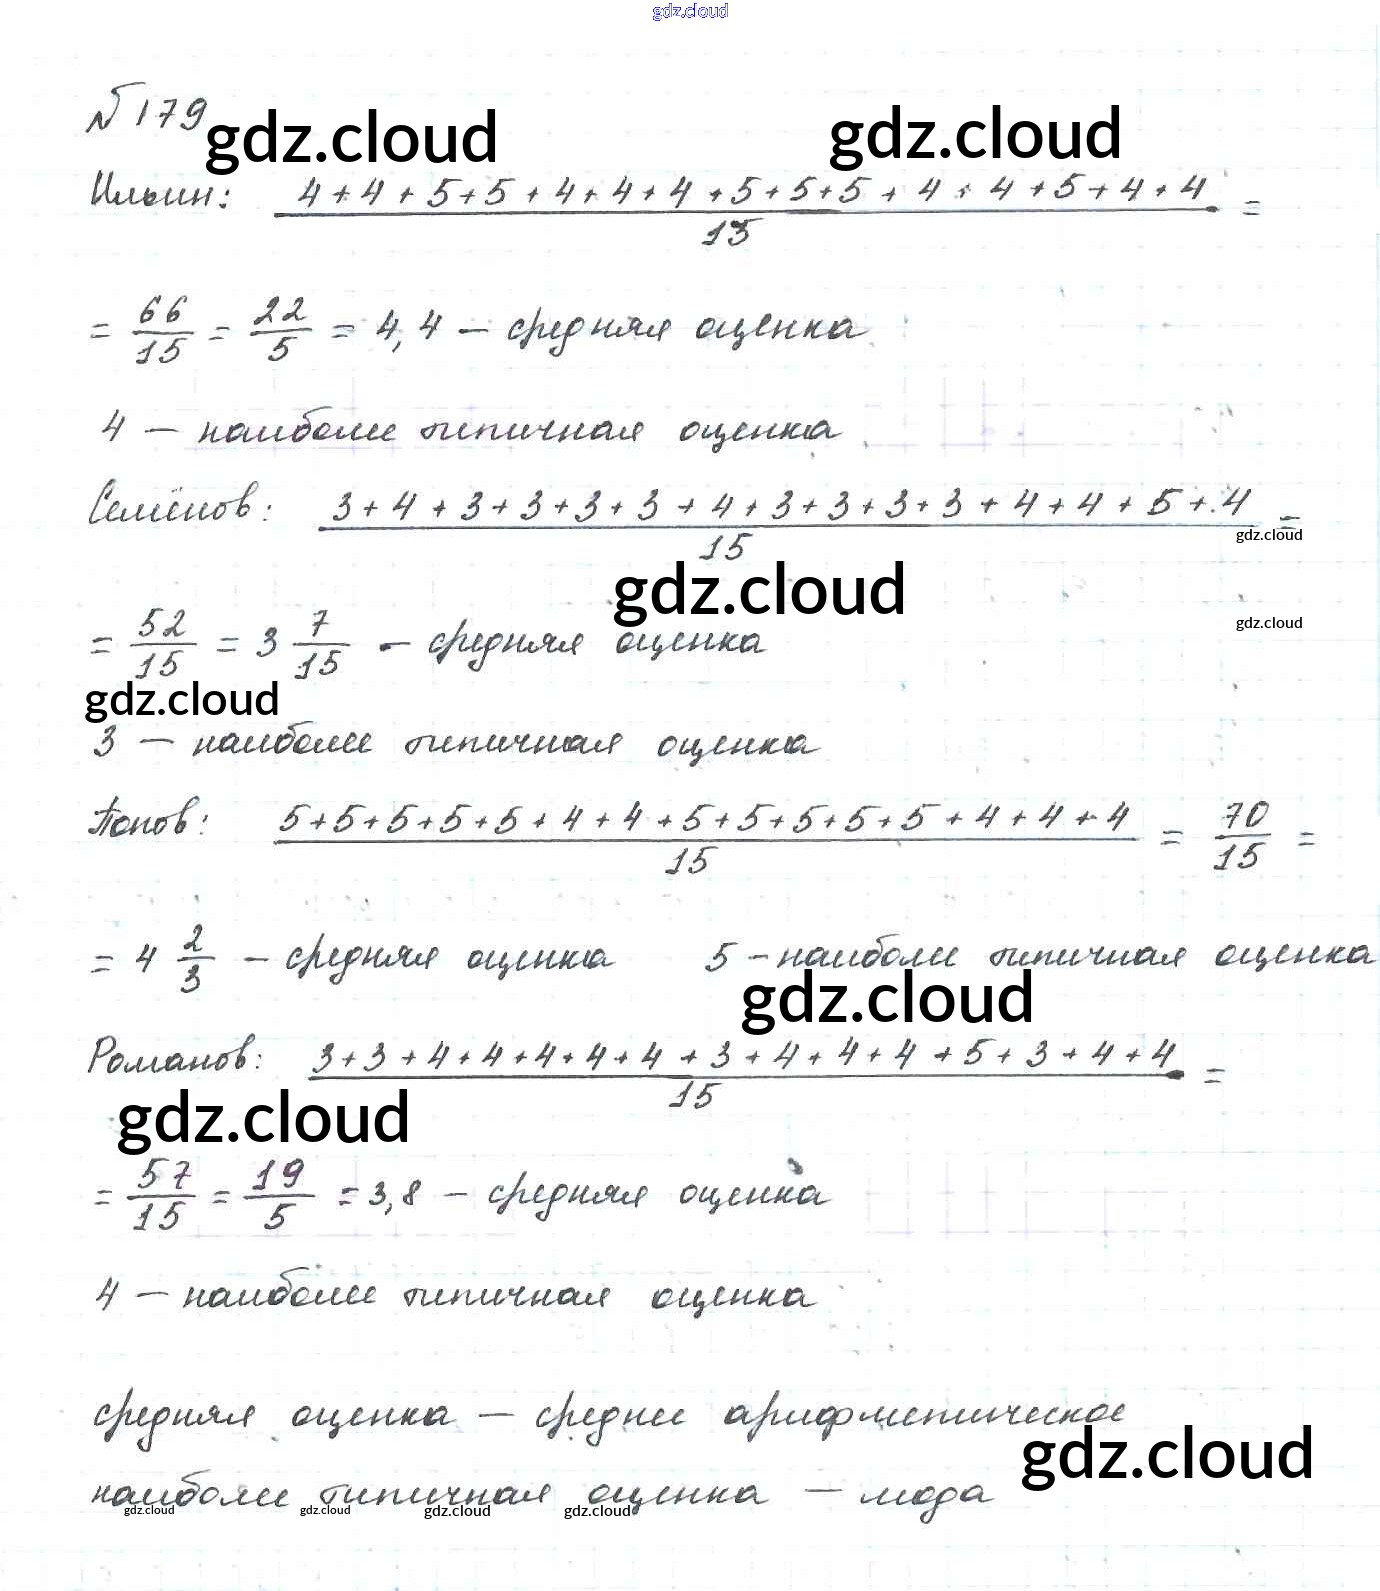 gdz.cloud
№179
gdz.cloud gdz.cloud
Ильин: 4+4+5+5+4+4+4+5+5+5+4+4+5+4+4 =
15
= 66/15 = 22/5 = 4,4 — средняя оценка
4 — наиболее типичная оценка
Семёнов: 3+4+3+3+3+3+4+3+3+3+3+4+4+5+4 =
15
gdz.cloud
gdz.cloud
gdz.cloud
= 52/15 = 3 7/15 — средняя оценка
gdz.cloud
3 — наиболее типичная оценка
Попов: 5+5+5+5+5+4+4+5+5+5+5+5+4+4+4 = 70/15 =
15
= 4 2/3 — средняя оценка 5 - наиболее типичная оценка
gdz.cloud
Романов: 3+3+4+4+4+4+4+3+4+4+4+5+3+4+4 =
15
gdz.cloud
= 57/15 = 19/5 = 3,8 — средняя оценка
4 — наиболее типичная оценка
средняя оценка — среднее арифметическое
gdz.cloud
наиболее типичная оценка — мода
gdz.cloud gdz.cloud gdz.cloud gdz.cloud